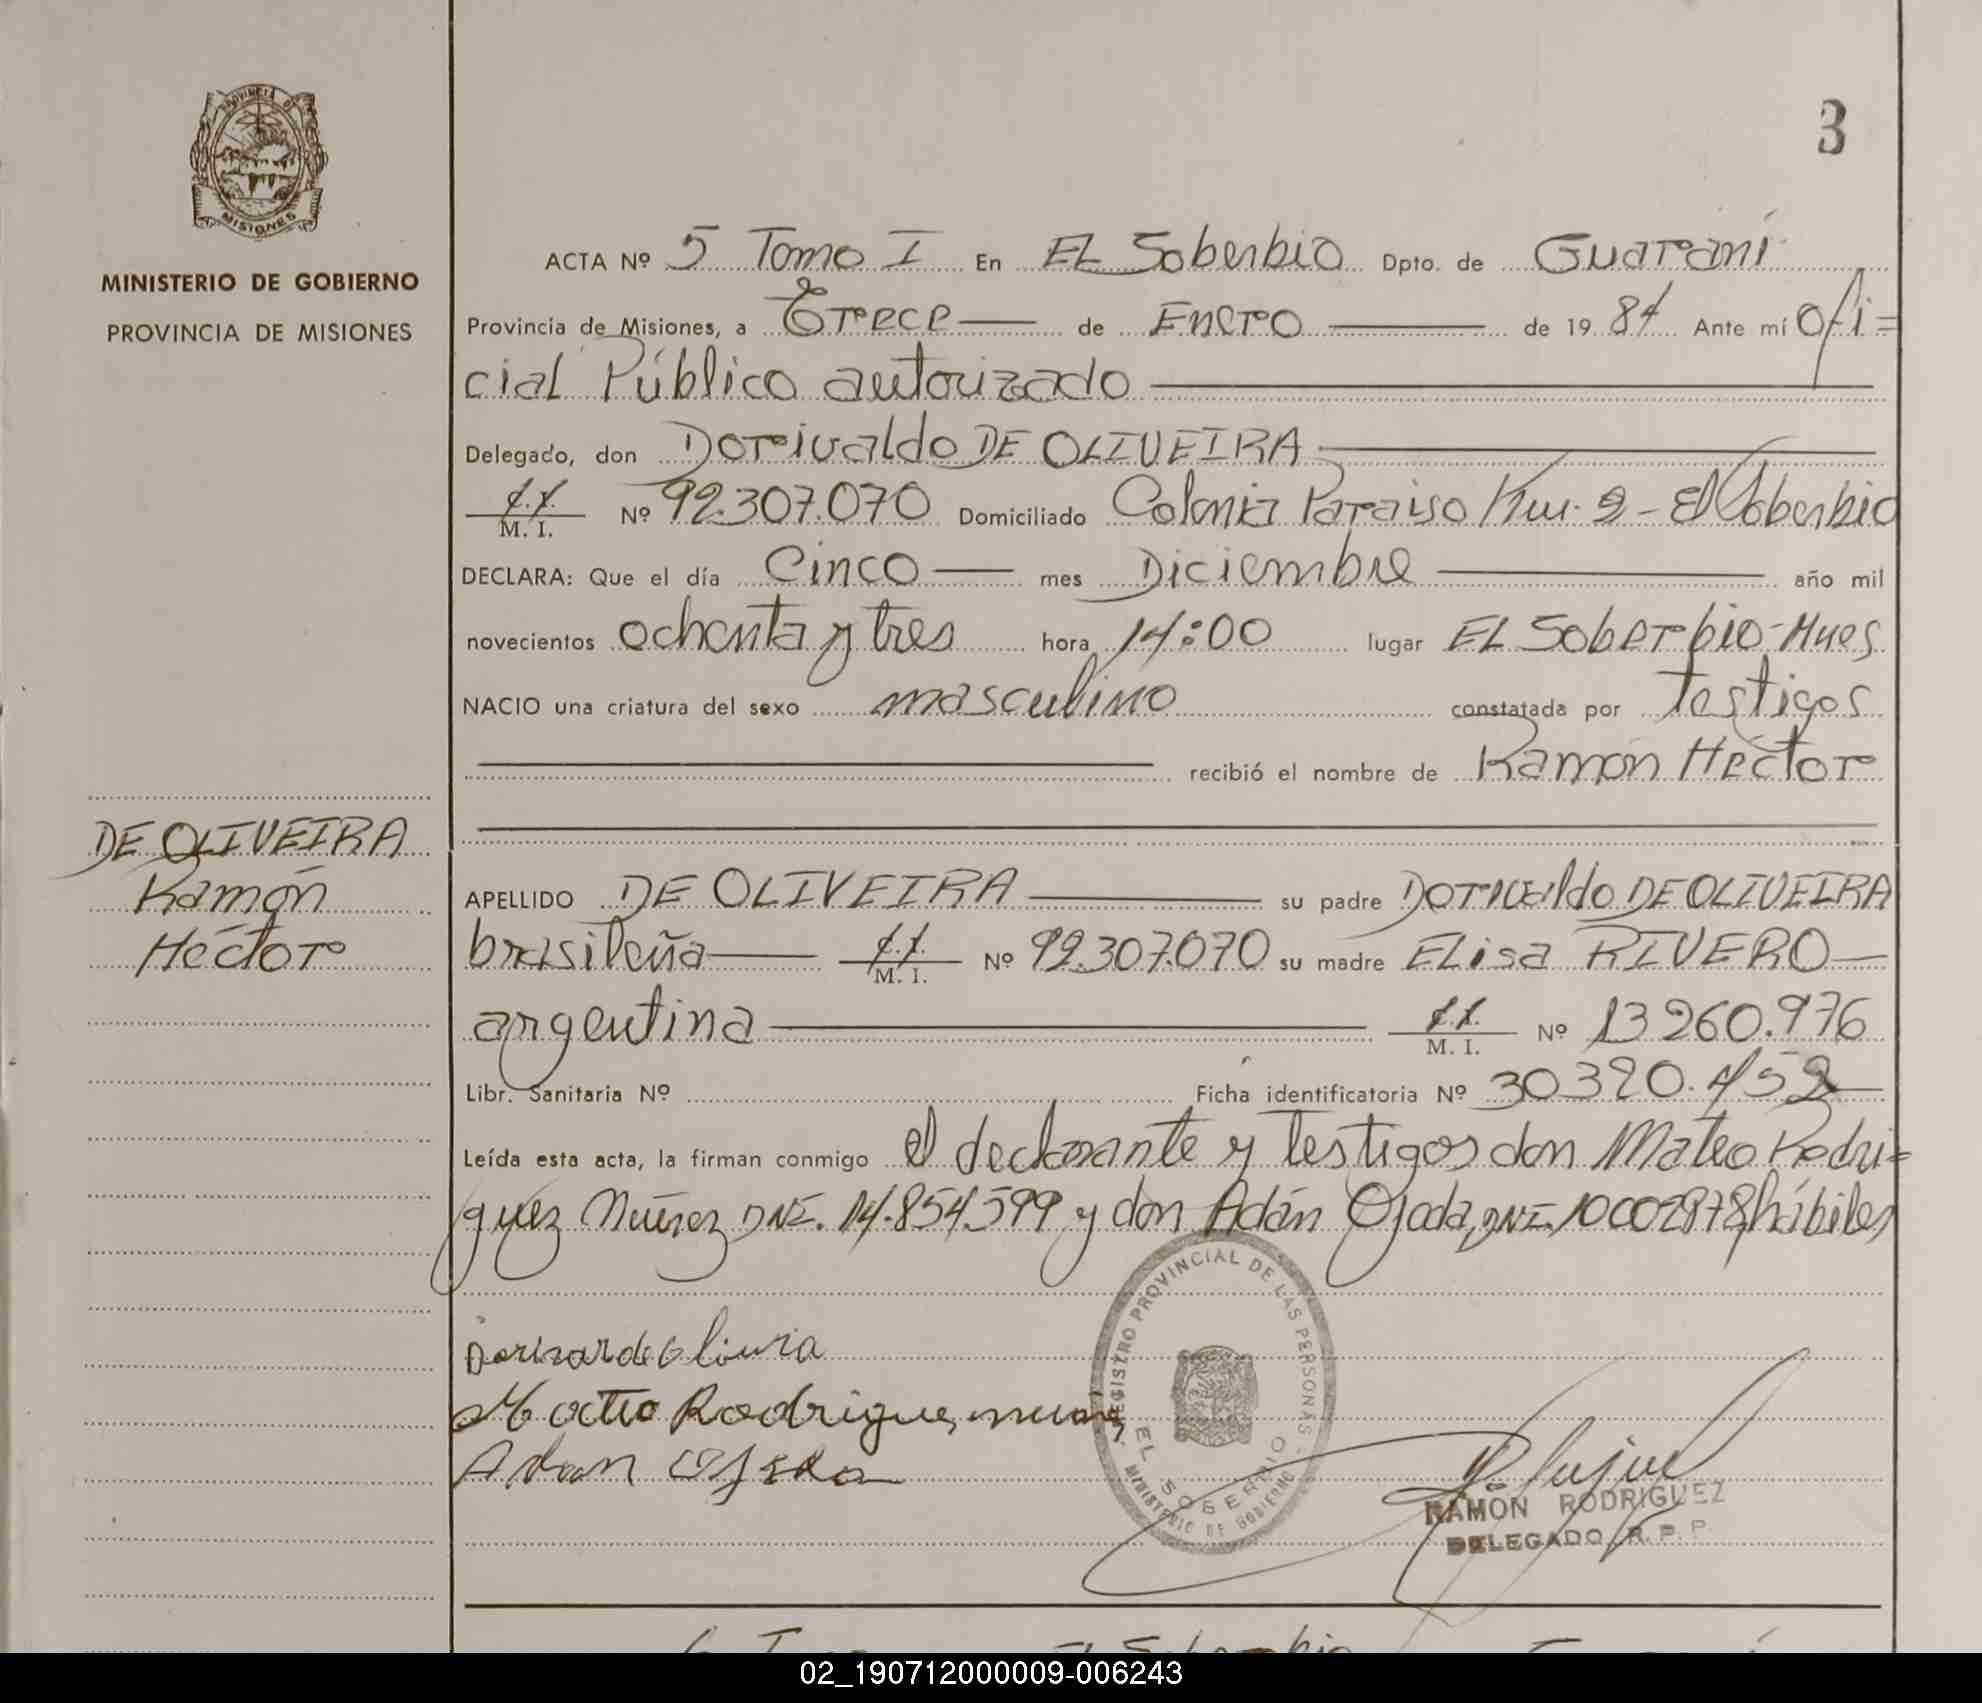 3
PROVINCIA DE
MISIONES
MINISTERIO DE GOBIERNO
PROVINCIA DE MISIONES
ACTA Nº 5 Tomo I En EL Soberbio Dpto. de Guaraní
Provincia de Misiones, a Trece de Enero de 1984 Ante mí ofi=
cial Público autorizado
Delegado, don Dorivaldo DE OLIVEIRA
M. I. Nº 92.307.070 Domiciliado Colonia Paraiso Km. 2 - El Soberbio
DECLARA: Que el día Cinco mes Diciembre año mil
novecientos ochenta y tres hora 14:00 lugar EL Soberbio-Mnes
NACIO una criatura del sexo masculino constatada por testigos
recibió el nombre de Ramón Héctor
DE OLIVEIRA
Ramón
Héctor
APELLIDO DE OLIVEIRA su padre Dorivaldo DE OLIVEIRA
brasileña M. I. Nº 92.307.070 su madre ELisa RIVERO
argentina M. I. Nº 13260.976
Libr. Sanitaria Nº Ficha identificatoria Nº 30320.452
Leída esta acta, la firman conmigo el declarante y testigos don Mateo Rodri=
guez Núñez DNI. 14.854.599 y don Adán Ojeda, DNI. 10002878, hábiles
Mateo Rodrigues
Adan Ojeda
REGISTRO PROVINCIAL DE LAS PERSONAS
EL SOBERBIO
MINISTERIO DE GOBIERNO
RAMON RODRIGUEZ
DELEGADO R. P. P.
02_190712000009-006243